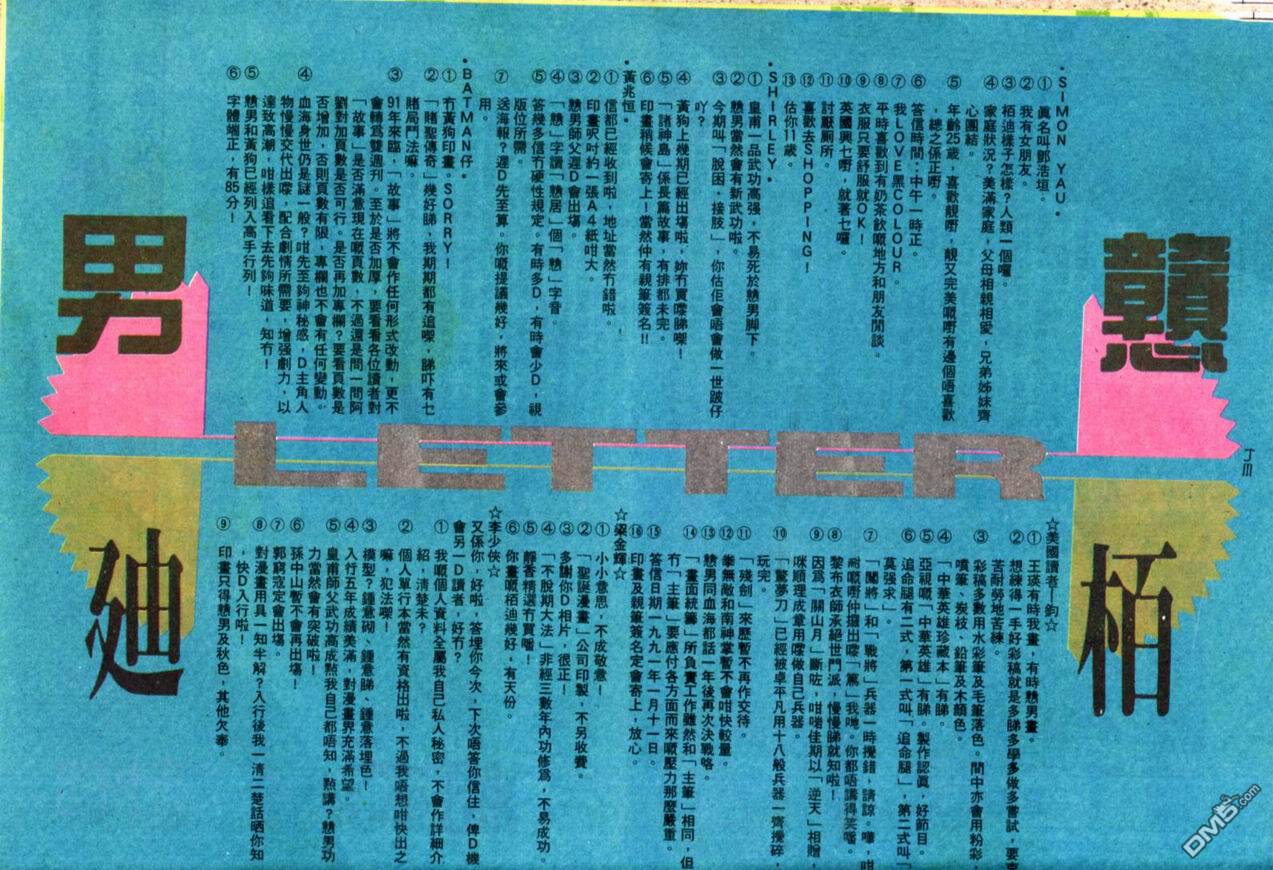 戇男
LETTER
栢廸
JM
•SIMON YAU•
①眞名叫鄧浩垣。
②我有女朋友。
③栢迪樣子怎樣?人類一個囉。
④家庭狀況?美滿家庭,父母相親相愛,兄弟姊妹齊
心團結。
⑤年齡25歲,喜歡靚嘢,靚又完美嘅嘢有邊個唔喜歡
,總之係正嘢。
⑥答信時間:中午一時正。
⑦我LOVE黑COLOUR
⑧平時喜歡到有奶茶飲嘅地方和朋友閒談。
⑨衣服只要舒服就OK!
⑩英國興七嘢,就著七囉。
⑪討厭厠所。
⑫喜歡去SHOPPING!
⑬估你11歲。
•SHIRLEY•
①皇甫一品武功高强,不易死於戇男脚下。
②戇男當然會有新武功啦。
③今期叫「脫困,接肢」,你估佢會唔會做一世跛仔
吖?
④黃狗上幾期已經出場啦,妳冇買嚟睇㗎!
⑤「諸神島」係長篇故事,有排都未完。
⑥印畫稍候會寄上!當然仲有親筆簽名!!
•黃兆恒•
①信都已經收到啦,地址當然冇錯啦。
②印畫呎吋約一張A4紙咁大。
③戇男師父遲D會出場。
④「戇」字讀「戇居」個「戇」字音。
⑤答幾多信冇硬性規定。有時多D,有時會少D,視
版位所需。
⑦送海報?遲D先至算。你嘅提議幾好,將來或會參
用。
•BATMAN仔•
①冇黃狗印畫。SORRY!
②「賭聖傳奇」幾好睇,我期期都有追㗎,睇吓有七
賭局鬥法嘛。
③91年來臨,「故事」將不會作任何形式改動,更不
會轉爲雙週刊。至於是否加厚,要看看各位讀者對
「故事」是否滿意現在嘅頁數,不過還是問一問阿
劉對加頁數是否可行。是否再加專欄?要看頁數是
否增加,否則頁數有限,專欄也不會有任何變動。
④血海身世仍是謎一般?咁先至夠神秘感,D主角人
物慢慢交代出嚟,配合劇情所需要,增强劇力,以
達致高潮,咁樣追看下去先夠味道,知冇!
⑤戇男和黃狗已經列入高手行列!
⑥字體端正,有85分!
☆美國讀者—鈞☆
①王瑛有時我畫,有時戇男畫。
②想練得一手好彩稿就是多睇多學多做多嘗試,要
苦耐勞地苦練。
③彩稿多數用水彩筆及毛筆落色。間中亦會用粉彩,
噴筆、炭枝、鉛筆及木顏色。
④「中華英雄珍藏本」有睇。
⑤亞視嘅「中華英雄」有睇。製作認眞,好節目。
⑥追命腿有二式,第一式叫「追命腿」,第二式叫「
莫强求」。
⑦「闖將」和「戰將」兵器一時攪錯,請諒。嘩,咁
耐嘅嘢仲攞出嚟「篤」我哋。你都唔講得笑㗎。
⑧黎布衣師承絕世門派,慢慢睇就知啦!
⑨因爲「關山月」斷咗,咁啱佳期以「逆天」相贈,
咪順理成章用嚟做自己兵器。
⑩「驚夢刀」已經被卓平凡用十八般兵器一齊攪碎,
玩完。
⑪「殘劍」來歷暫不再作交待。
⑫拳無敵和南神掌暫不會咁快較量。
⑬戇男同血海都話一年後再次決戰咯。
⑭「畫面統籌」所負責工作雖然和「主筆」相同,但
冇「主筆」要應付各方面而來嘅壓力那麼嚴重。
⑮答信日期一九九一年一月十一日。
⑯印畫及親筆簽名定會寄上,放心。
☆梁金輝☆
①小小意思,不成敬意!
②「聖誕漫畫」公司印製,不另收費。
③多謝你D相片,很正!
④「不脫期大法」非經三數年內功修爲,不易成功。
⑤靜香精選冇買㗎!
⑥你畫嘅栢廸幾好,有天份。
☆李少俠☆
又係你,好啦,答埋你今次,下次唔答你信住,俾D機
會另一D讀者,好冇?
①我嘅個人資料全屬我自己私人秘密,不會作詳細介
紹,清楚未?
②個人單行本當然有資格出啦,不過我唔想咁快出之
嘛,犯法㗎!
③模型?鍾意砌、鍾意睇、鍾意落埋色!
④入行五年成績美滿,對漫畫界充滿希望。
⑤皇甫師父武功高成點我自己都唔知,點講?戇男功
力當然會有突破啦!
⑥孫中山暫不會再出場!
⑦郭窮寇定會出場。
⑧對漫畫用具一知半解?入行後我一清二楚話晒你知
,快D入行啦!
⑨印畫只得戇男及秋色,其他欠奉
DM5.com